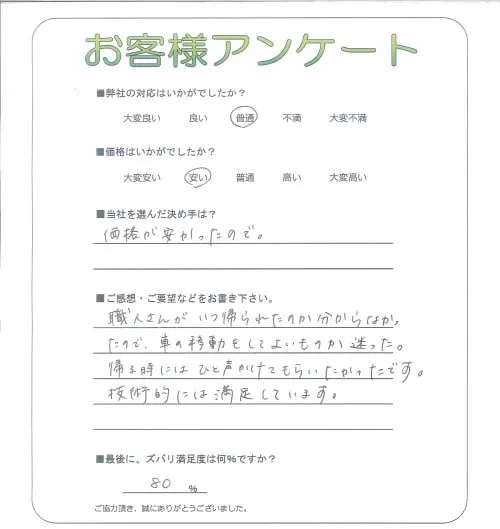 お客様アンケート
■弊社の対応はいかがでしたか？
大変良い 良い 普通 不満 大変不満
■価格はいかがでしたか？
大変安い 安い 普通 高い 大変高い
■当社を選んだ決め手は？
価格が安かったので。
■ご感想・ご要望などをお書き下さい。
職人さんがいつ帰られたのか分からなかっ
たので、車の移動をしてよいものか迷った。
帰る時にはひと声かけてもらいたかったです。
技術的には満足しています。
■最後に、ズバリ満足度は何%ですか？
80 %
ご協力頂き、誠にありがとうございました。